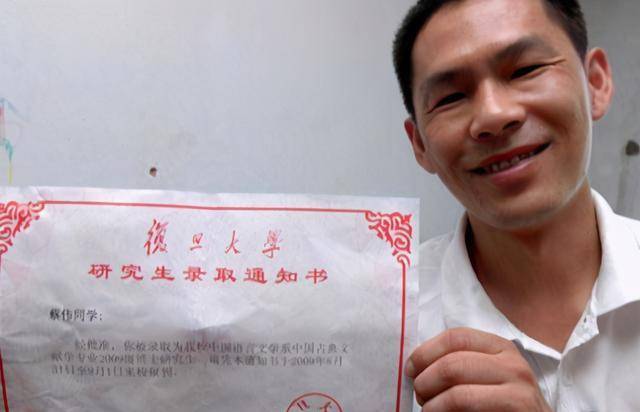 復旦大學
研究生录取通知书
蔡伟同学:
经批准，你被录取为我校中国语言文学系中国古典文
献学专业2009级博士研究生，请凭本通知书于2009年8月
31日至9月1日来校报到。